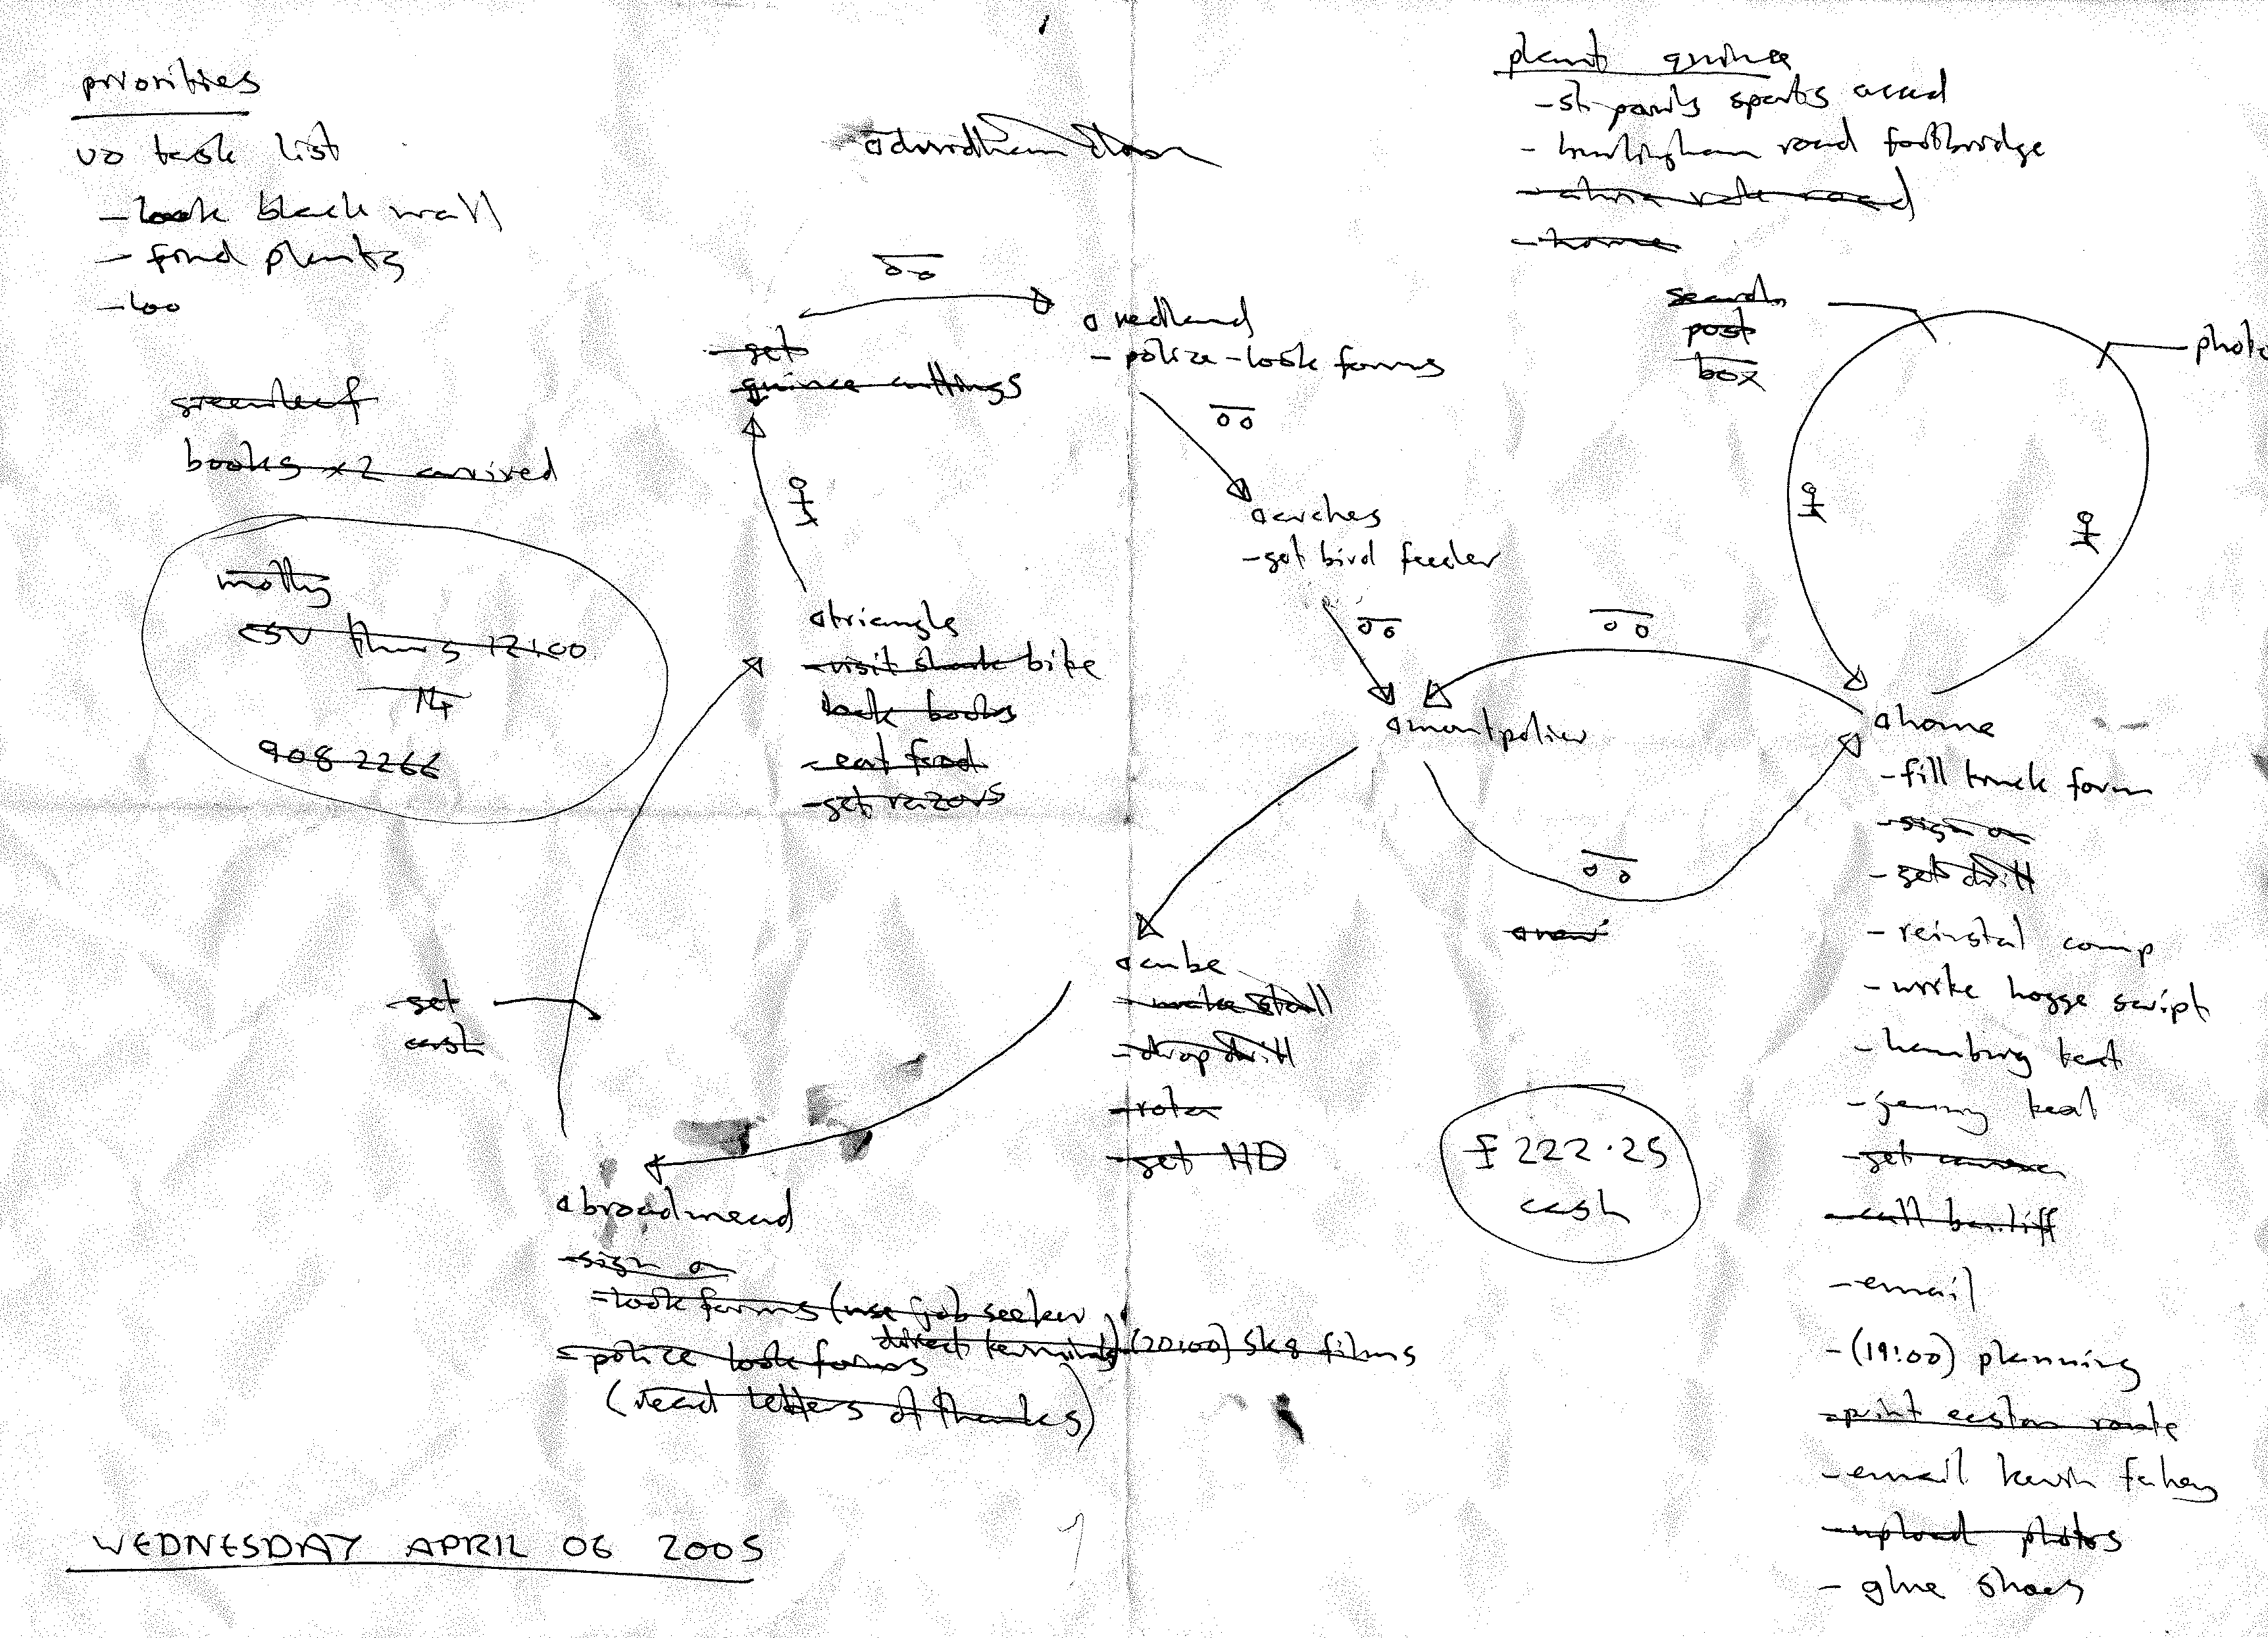 priorities
vo task list
- look black wall
- find plants
- loo
greenleaf
books x2 arrived
molly
csv thurs 12:00
908 2266
@durdham down
- get
quince cuttings
@redland
- police - look forms
@arches
- get bird feeder
@triangle
- visit shark bike
look books
- eat food
- get razors
@montpolier
plant quince
- st pauls sports acad
- burlingham road footbridge
- road
- home
search
post
box
photo
@home
- fill truck form
- sign on
- get drill
- reinstal comp
- write hogge script
- hamburg text
- jenny
- get camera
- call bailiff
- email
- (19:00) planning
- print easton route
- email kevin fahey
- upload photos
- glue shoes
@cube
- make stall
- drop drill
- rota
- get HD
- (20:00) sk8 films
£222.25
cash
- get
cash
@broadmead
- sign on
- look forms (use job seeker
direct terminals)
- police look forms
(read letters of thanks)
WEDNESDAY APRIL 06 2005